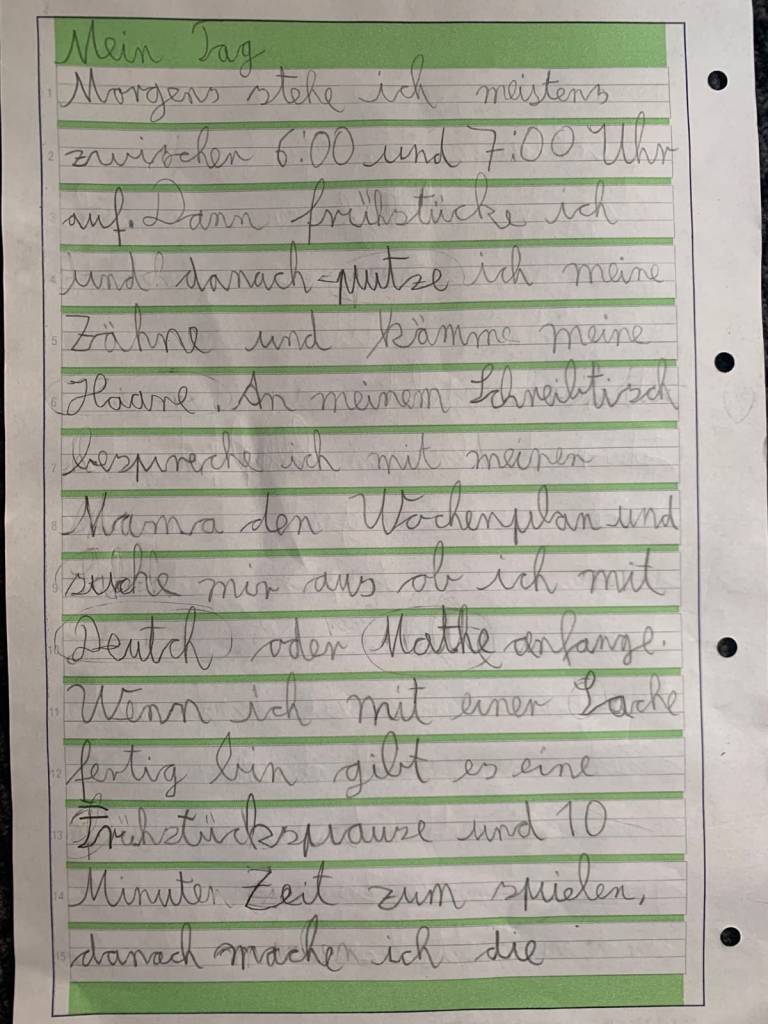 Mein Tag
Morgens stehe ich meistens
zwischen 6:00 und 7:00 Uhr
auf. Dann frühstücke ich
und danach putze ich meine
Zähne und kämme meine
Haare. An meinem Schreibtisch
bespreche ich mit meiner
Mama den Wochenplan und
suche mir aus ob ich mit
Deutch oder Mathe anfange.
Wenn ich mit einer Sache
fertig bin gibt es eine
Frühstückspause und 10
Minuten Zeit zum spielen,
danach mache ich die
1
2
3
4
5
6
7
8
9
10
11
12
13
14
15